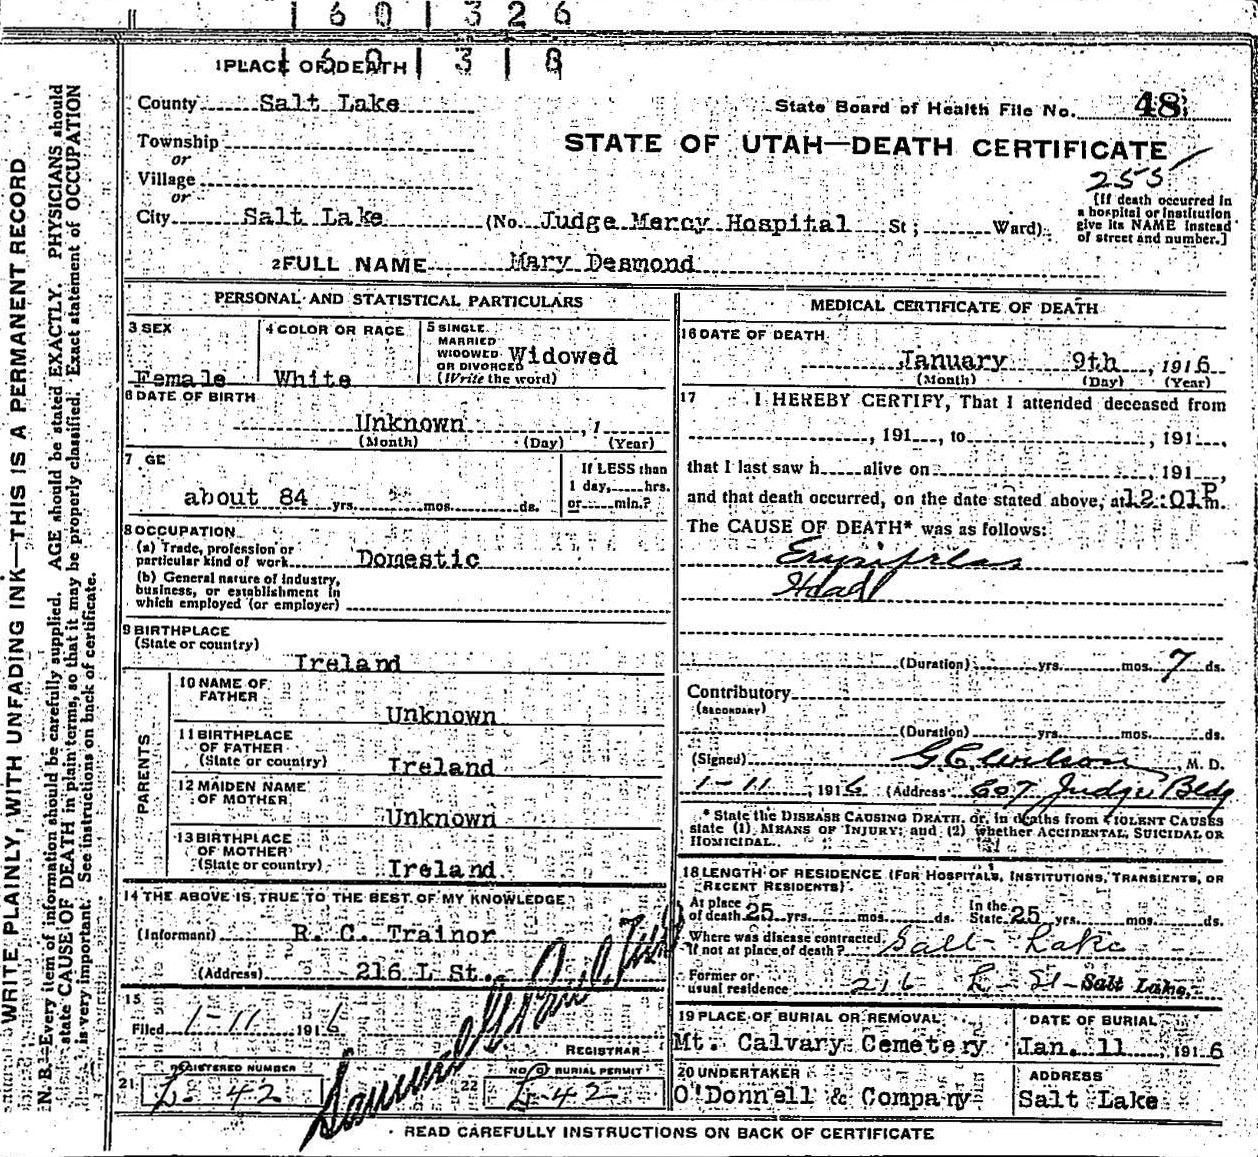 1 6 0 1 3 2 6
1 6 0 1 3 1 8
1 PLACE OF DEATH
County Salt Lake
State Board of Health File No. 48
Township
or
STATE OF UTAH—DEATH CERTIFICATE
Village
or
255
City Salt Lake (No. Judge Mercy Hospital St; Ward)
[If death occurred in
a hospital or institution
give its NAME instead
of street and number.]
2 FULL NAME Mary Desmond
PERSONAL AND STATISTICAL PARTICULARS
3 SEX
Female
4 COLOR OR RACE
White
5 SINGLE
MARRIED
WIDOWED
OR DIVORCED
(Write the word)
Widowed
6 DATE OF BIRTH
Unknown , 1
(Month) (Day) (Year)
7 GE
about 84 yrs. mos. ds.
If LESS than
1 day, hrs.
or min.?
8 OCCUPATION
(a) Trade, profession or
particular kind of work Domestic
(b) General nature of industry,
business, or establishment in
which employed (or employer)
9 BIRTHPLACE
(State or country)
Ireland
PARENTS
10 NAME OF
FATHER
Unknown
11 BIRTHPLACE
OF FATHER
(State or country) Ireland
12 MAIDEN NAME
OF MOTHER
Unknown
13 BIRTHPLACE
OF MOTHER
(State or country) Ireland
14 THE ABOVE IS TRUE TO THE BEST OF MY KNOWLEDGE
(Informant) R. C. Trainor
(Address) 216 L St.
15
Filed 1-11 1916
REGISTRAR
21 REGISTERED NUMBER
L 42
22 NO. OF BURIAL PERMIT
L-42
MEDICAL CERTIFICATE OF DEATH
16 DATE OF DEATH
January 9th , 1916
(Month) (Day) (Year)
17 I HEREBY CERTIFY, That I attended deceased from
, 191 , to , 191 ,
that I last saw h alive on , 191 ,
and that death occurred, on the date stated above, at 12:01 P m.
The CAUSE OF DEATH* was as follows:
Erysipelas
Head
(Duration) yrs. mos. 7 ds.
Contributory
(SECONDARY)
(Duration) yrs. mos. ds.
(Signed) G. C. Wilson M. D.
1-11 , 1916 (Address) 607 Judge Bldg
* State the DISEASE CAUSING DEATH, or, in deaths from VIOLENT CAUSES
state (1) MEANS OF INJURY; and (2) whether ACCIDENTAL, SUICIDAL OR
HOMICIDAL.
18 LENGTH OF RESIDENCE (FOR HOSPITALS, INSTITUTIONS, TRANSIENTS, OR
RECENT RESIDENTS)
At place
of death 25 yrs. mos. ds.
In the
State 25 yrs. mos. ds.
Where was disease contracted
If not at place of death? Salt Lake
Former or
usual residence 216 L - St - Salt Lake.
19 PLACE OF BURIAL OR REMOVAL
Mt. Calvary Cemetery
DATE OF BURIAL
Jan. 11 , 1916
20 UNDERTAKER
O'Donnell & Company
ADDRESS
Salt Lake
READ CAREFULLY INSTRUCTIONS ON BACK OF CERTIFICATE
WRITE PLAINLY, WITH UNFADING INK—THIS IS A PERMANENT RECORD
N. B.—Every item of information should be carefully supplied. AGE should be stated EXACTLY. PHYSICIANS should
state CAUSE OF DEATH in plain terms, so that it may be properly classified. Exact statement of OCCUPATION
is very important. See instructions on back of certificate.